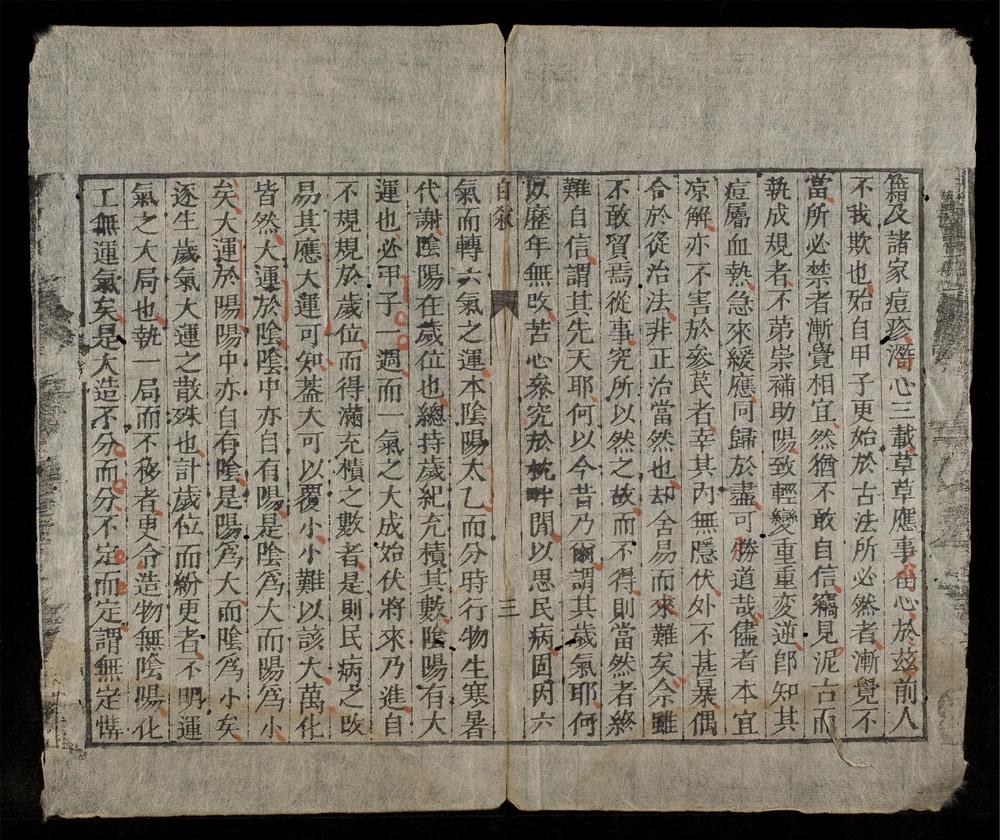 籍及諸家痘疹潛心三載草草應事留心於茲前人
不我欺也殆自甲子更始於古法所必然者漸覺不
當所必禁者漸覺相宜然猶不敢自信竊見泥古而
執成規者不第崇補助陽致輕變重重変逆卽知其
痘屬血熱急來緩應同歸於盡可勝道哉儘者本宜
凉解亦不害於參芪者幸其內無隱伏外不甚暴偶
合於從治法非正治當然也却舍易而來難矣余雖
不敢質焉從事究所以然之故而不得則當然者終
難自信謂其先天耶何以今昔乃爾謂其歲氣耶何
以歷年無改苦心叅究於枕畔間以思民病固因六
自叙
三
氣而轉六氣之運本陰陽太乙而分時行物生寒暑
代謝陰陽在歲位也總持歲紀充積其數陰陽有大
運也必甲子一週而一氣之大成始伏將來乃進自
不規規於歲位而得滿充積之數者是則民病之改
易其應大運可知葢大可以覆小小難以該大萬化
皆然大運於陰陰中亦自有陽是陰爲大而陽爲小
矣大運於陽陽中亦自有陰是陽爲大而陰爲小矣
逐生歲氣大運之散殊也計歲位而紛更者不明運
氣之大局也執一局而不移者更令造物無陰陽化
工無運氣矣是大造不分而分不定而定謂無定憐